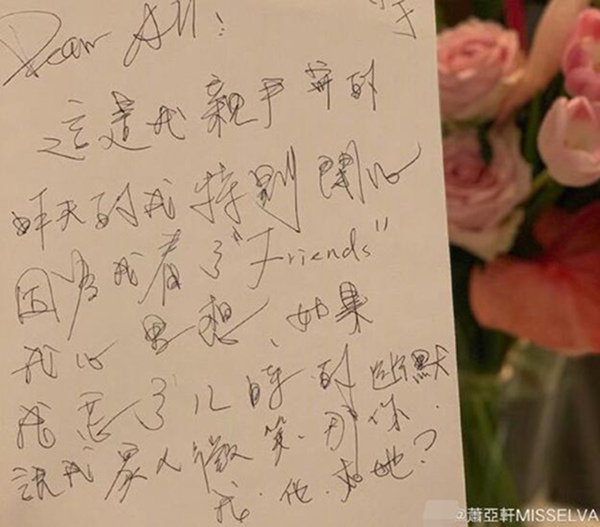 Dear All:
這是我親手寫的
昨天的我特別開心
因為我看了"Friends"
我心思想、如果
我丟了兒時的幽默
說我眾人微笑.那你.
我.他.和她?
@蕭亞軒MISSELVA